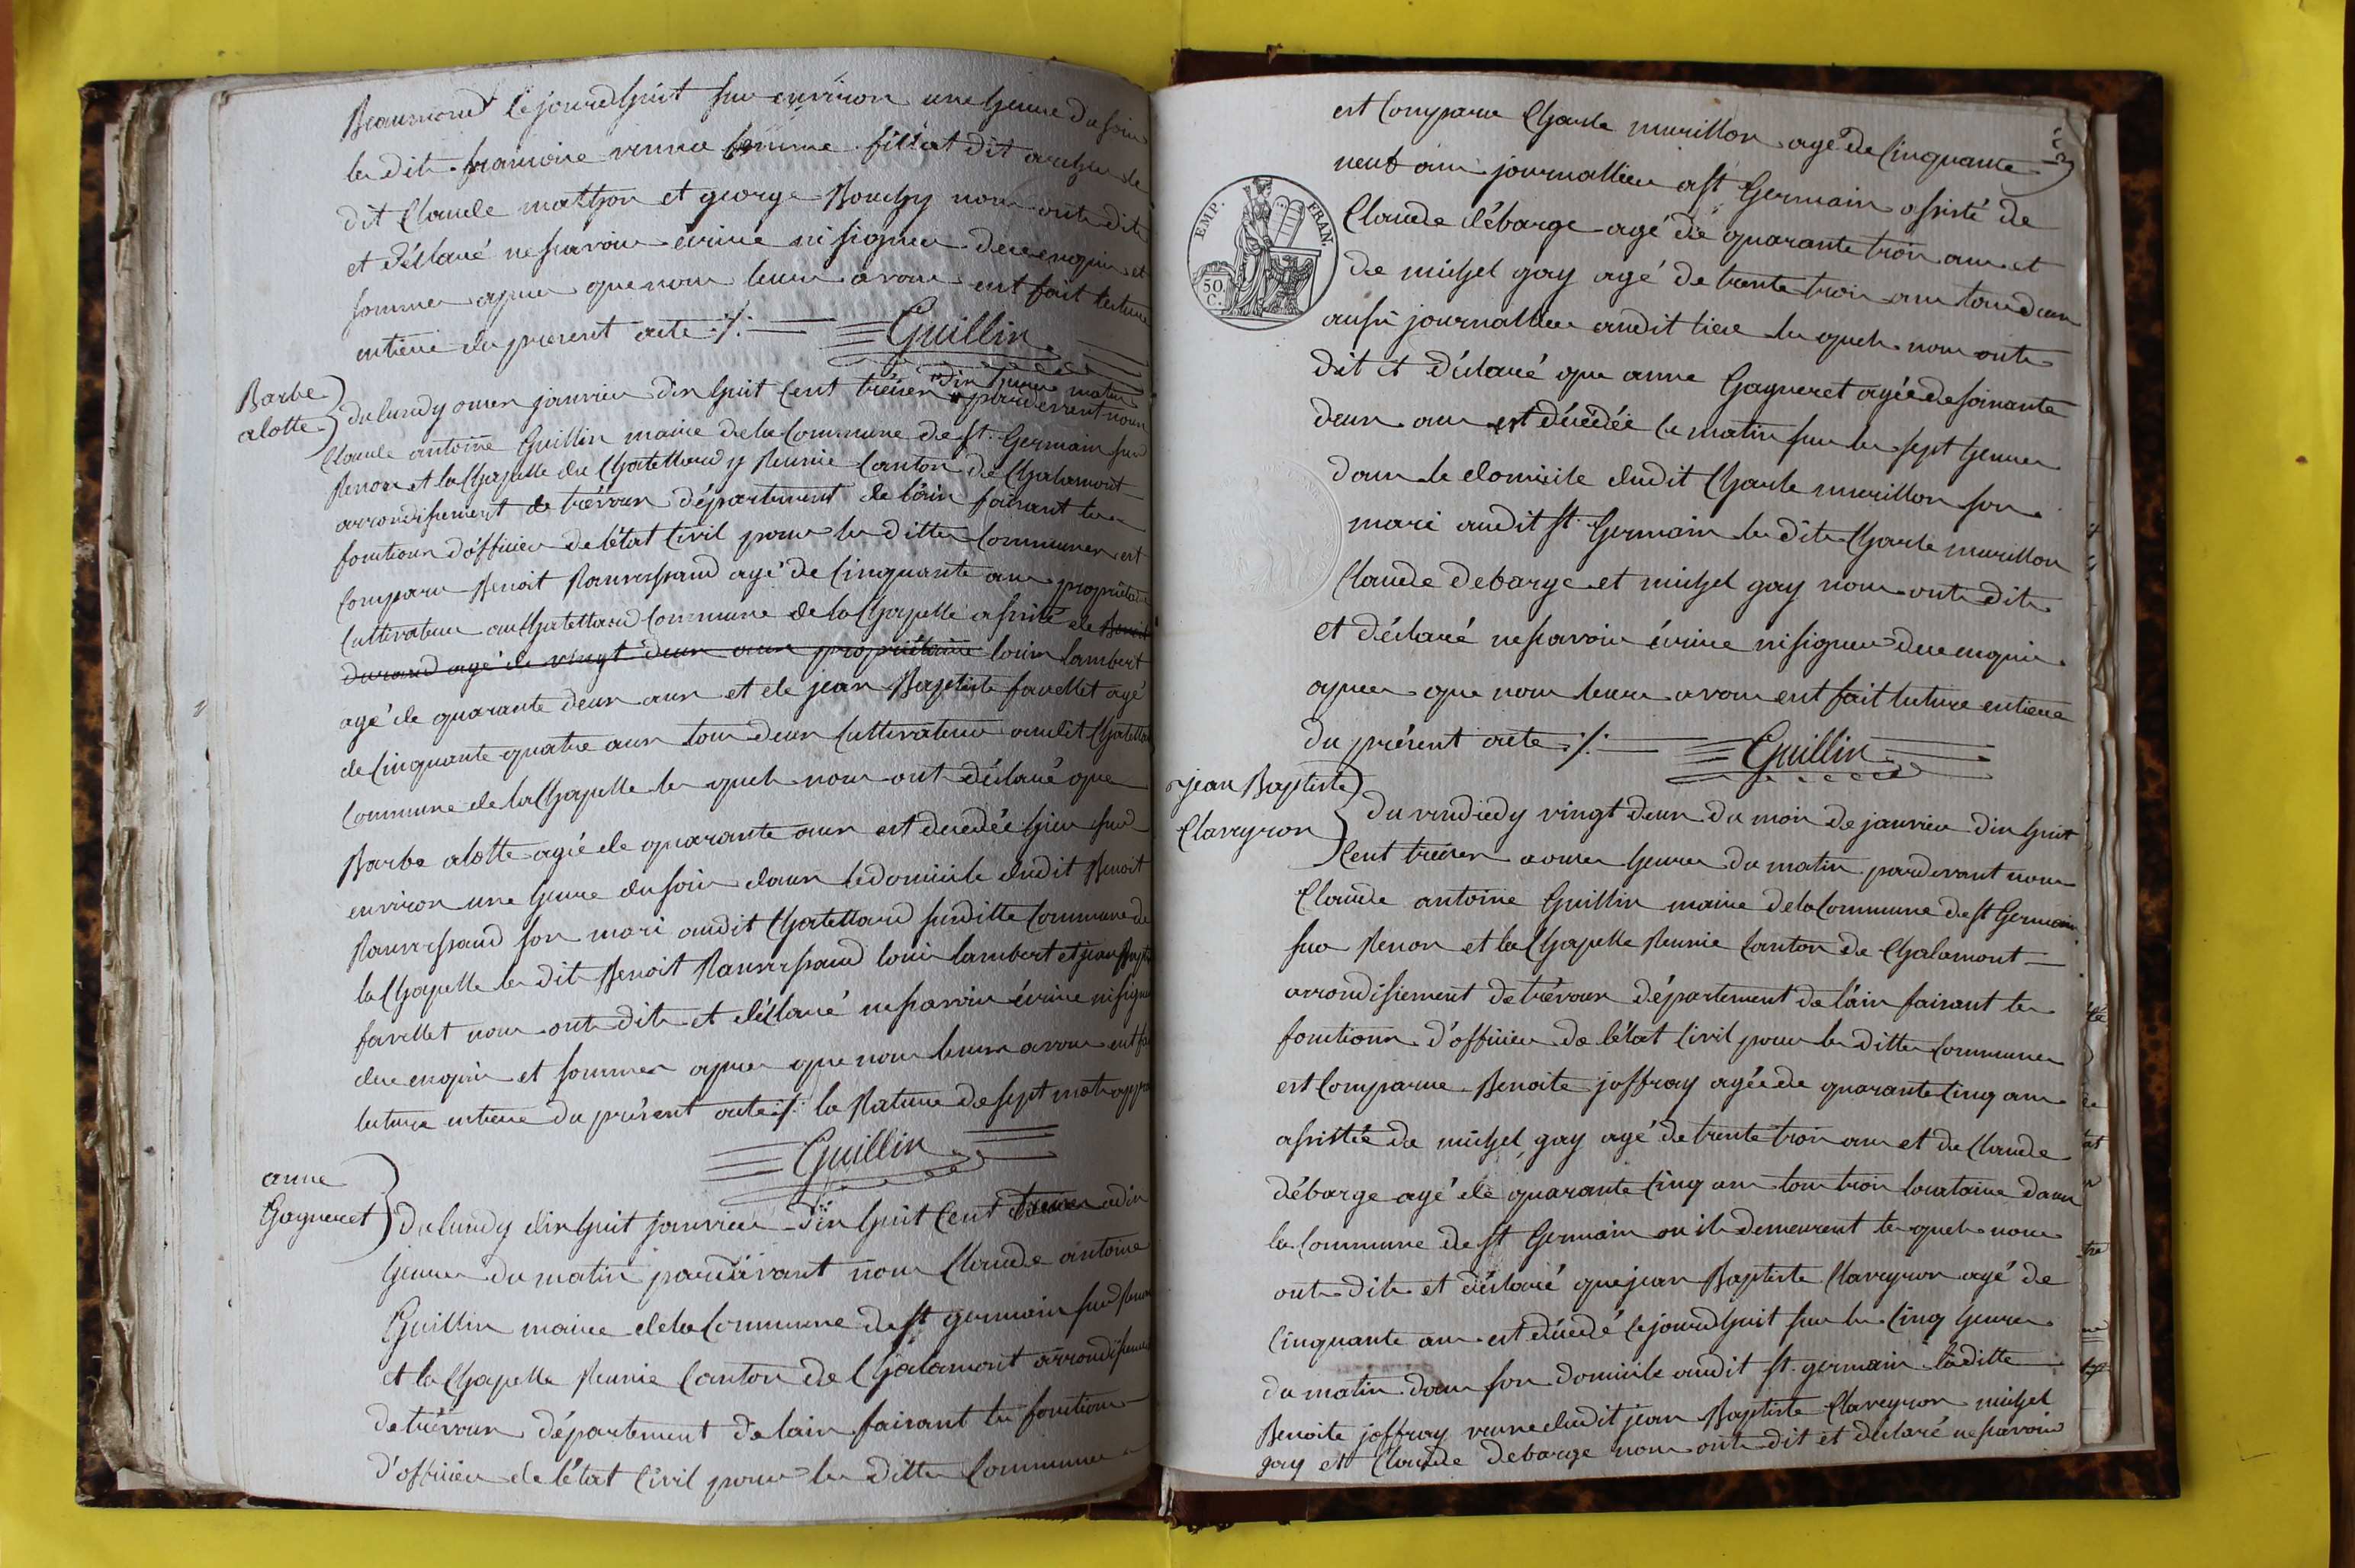 Beaumond cejourdhuit sur environ une heure du soir
les dits francoise veuve femme fillat dit archer le
dit Claude mathon et george Bouchy nous ont dit
et déclaré ne savoir écrire ni signer de ce enquis et
sommes apres que nous leurs avons eut fait lecture
entiere du present acte ./. Guillin
Barbe
alotte
du lundy onzen janvier dix huit cent treizen a dix heures matin pardevent nous
Claude antoine Guillin maire de la Commune de st. Germain sur
Renon et la Chapelle du Chatellard y Reunie Canton de Chalamont
arrondisement de trévoux département de l'ain faisant les
fonctions d'officier de l'état Civil pour les dittes Communes est
Comparu Benoit Ranversand agé de Cinquante ans propriétaire
Cultivateur au Chatellard Commune de la Chapelle assisté de Benoit
durand agé de vingt deux ans propriétaire louis lambert
agé de quarante deux ans et de jean Baptiste favellet agé
de Cinquante quatre ans tous deux Cultivateurs audit Chatellard
Commune de la Chapelle les quels nous ont déclaré que
Barbe alotte agée de quarante ans est decedée hier sur
environ une heure du soir dans le domicile dudit Benoit
Ranversand son mari audit Chatellard surditte Commune de
la Chapelle les dits Benoit Ranversand louis lambert et jean Baptiste
favellet nous ont dit et déclaré ne savoir écrire ni signer
de ce enquis et sommes apres que nous leurs avons eut fait
lecture entiere du présent acte ./. la Rature de sept mots appr
Guillin
anne
Gagneret
du lundy dix huit janvier dix huit Cent treizen a dix
heures du matin pardevant nous Claude antoine
Guillin maire de la Commune de st germain sur Renon
et la Chapelle Reunie Canton de Chalamont arrondisement
de trévoux département de lain faisant les fonctions
d'officier de l'état Civil pour les dittes Communes
est Comparu Charle murillon agé de Cinquante
neuf ans journallier a st Germain assisté de
Claude débarge agé de quarante trois ans et
de michel gay agé de trente trois ans tous deux
aussi journallier audit lieu les quels nous ont
dit et déclaré que anne Gagneret agée de soixante
deux ans est décédée ce matin sur les sept heures
dans le domicile dudit Charle murillon son
mari audit st. Germain les dits Charle murillon
Claude debarge et michel gay nous ont dit
et déclaré ne savoir écrire ni signer de ce enquis
apres que nous leurs avons eut fait lecture entiere
du présent acte ./. Guillin
EMP. FRAN.
50. C.
jean Baptiste
Claveyron
du vendredy vingt deux du mois de janvier dix huit
Cent treizen a onzes heures du matin pardevant nous
Claude antoine Guillin maire de la Commune de st Germain
sur Renon et la Chapelle Reunie Canton de Chalamont
arrondisiement de trévoux département de l'ain faisant les
fonctions d'officier de l'état Civil pour les dittes Communes
est Comparue Benoite joffray agée de quarante Cinq ans
assistée de michel gay agé de trente trois ans et de Claude
débarge agé de quarante Cinq ans tous trois locataire dans
la Commune de st Germain ou ils demeurent les quels nous
ont dit et déclaré que jean Baptiste Claveyron agé de
Cinquante ans est décédé cejourdhuit sur les Cinq heures
du matin dans son domicile audit st. germain laditte
Benoite joffray veuve dudit jean Baptiste Claveyron michel
gay et Claude debarge nous ont dit et déclaré ne savoir